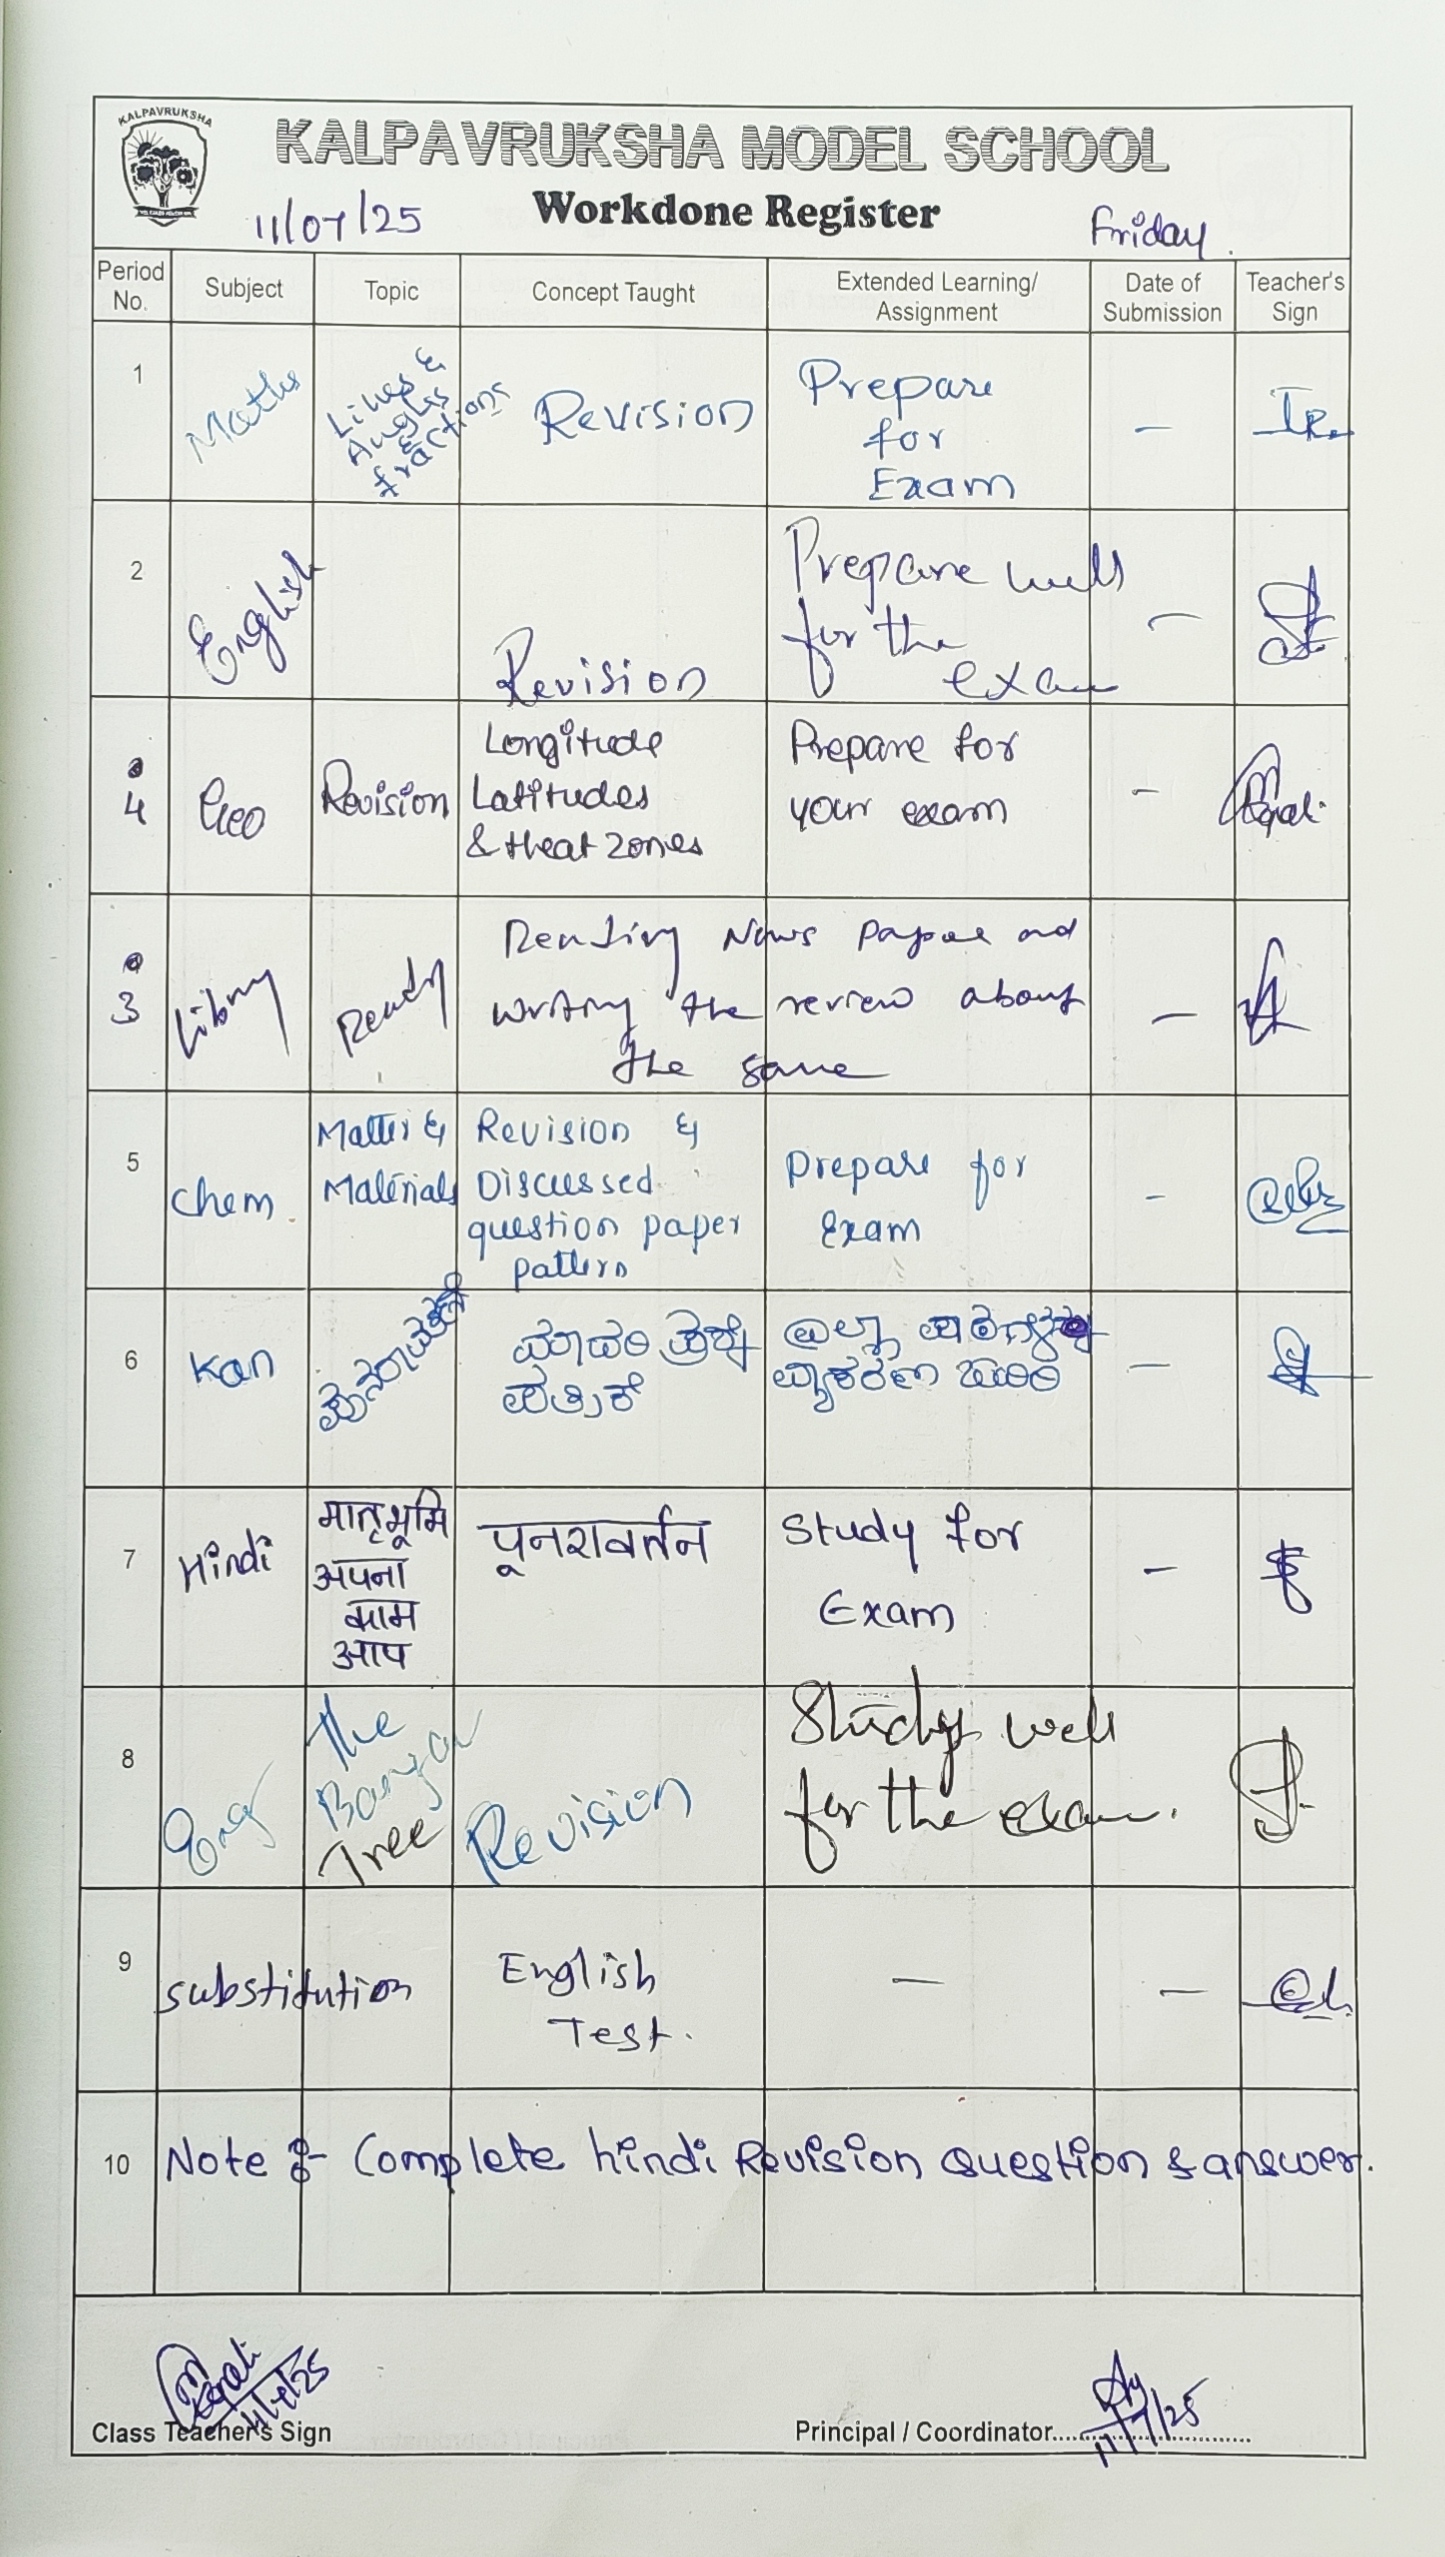 KALPAVRUKSHA
KALPAVRUKSHA MODEL SCHOOL
Workdone Register
11/07/25
Friday.
Period No.
Subject
Topic
Concept Taught
Extended Learning/
Assignment
Date of
Submission
Teacher's
Sign
1
Maths
Lines &
Angles
&
fractions
Revision
Prepare
for
Exam
–
2
English
Revision
Prepare well
for the
exam
–
4
Geo
Revision
Longitude
Latitudes
& Heat zones
Prepare for
your exam
–
3
Library
Reading
Reading News paper and
writing the review about
the same
–
5
Chem.
Matter &
Materials
Revision &
Discussed
question paper
pattern
Prepare for
Exam
–
6
Kan
ಮಾದರಿ ಪ್ರಶ್ನೆ
ಪತ್ರಿಕೆ
ಎಲ್ಲಾ
ವ್ಯಾಕರಣ
–
7
Hindi
मातृभूमि
अपना
काम
आप
पूनरावर्तन
Study for
Exam
–
8
Eng
The
Banyan
Tree
Revision
Study well
for the exam.
9
substitution
English
Test.
–
–
10
Note :- Complete hindi Revision question & answer.
11/7/25
Class Teacher's Sign
11/7/25
Principal / Coordinator..............................